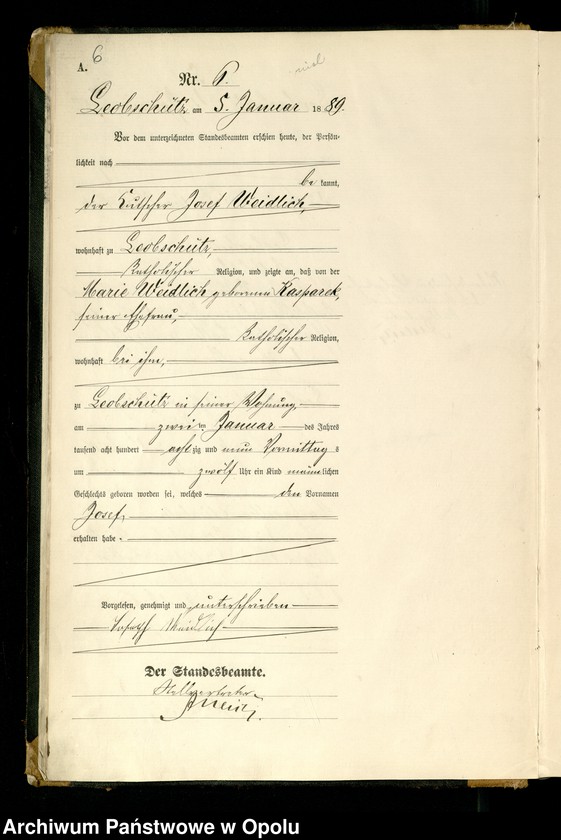 6
A.
Nr. 6.
Leobschütz am 5. Januar 1889.
Vor dem unterzeichneten Standesbeamten erschien heute, der Persön-
lichkeit nach
be kannt,
der Kutscher Josef Weidlich,
wohnhaft zu Leobschütz,
katholischer Religion, und zeigte an, daß von der
Marie Weidlich geborenen Kasparek,
seiner Ehefrau,
katholischer Religion,
wohnhaft bei ihm,
zu Leobschütz in seiner Wohnung,
am zwei ten Januar des Jahres
tausend acht hundert acht zig und neun Vormittags
um zwölf Uhr ein Kind männlichen
Geschlechts geboren worden sei, welches den Vornamen
Josef,
erhalten habe.
Vorgelesen, genehmigt und unterschrieben
Joseph Weidlich
Der Standesbeamte.
Archiwum Państwowe w Opolu